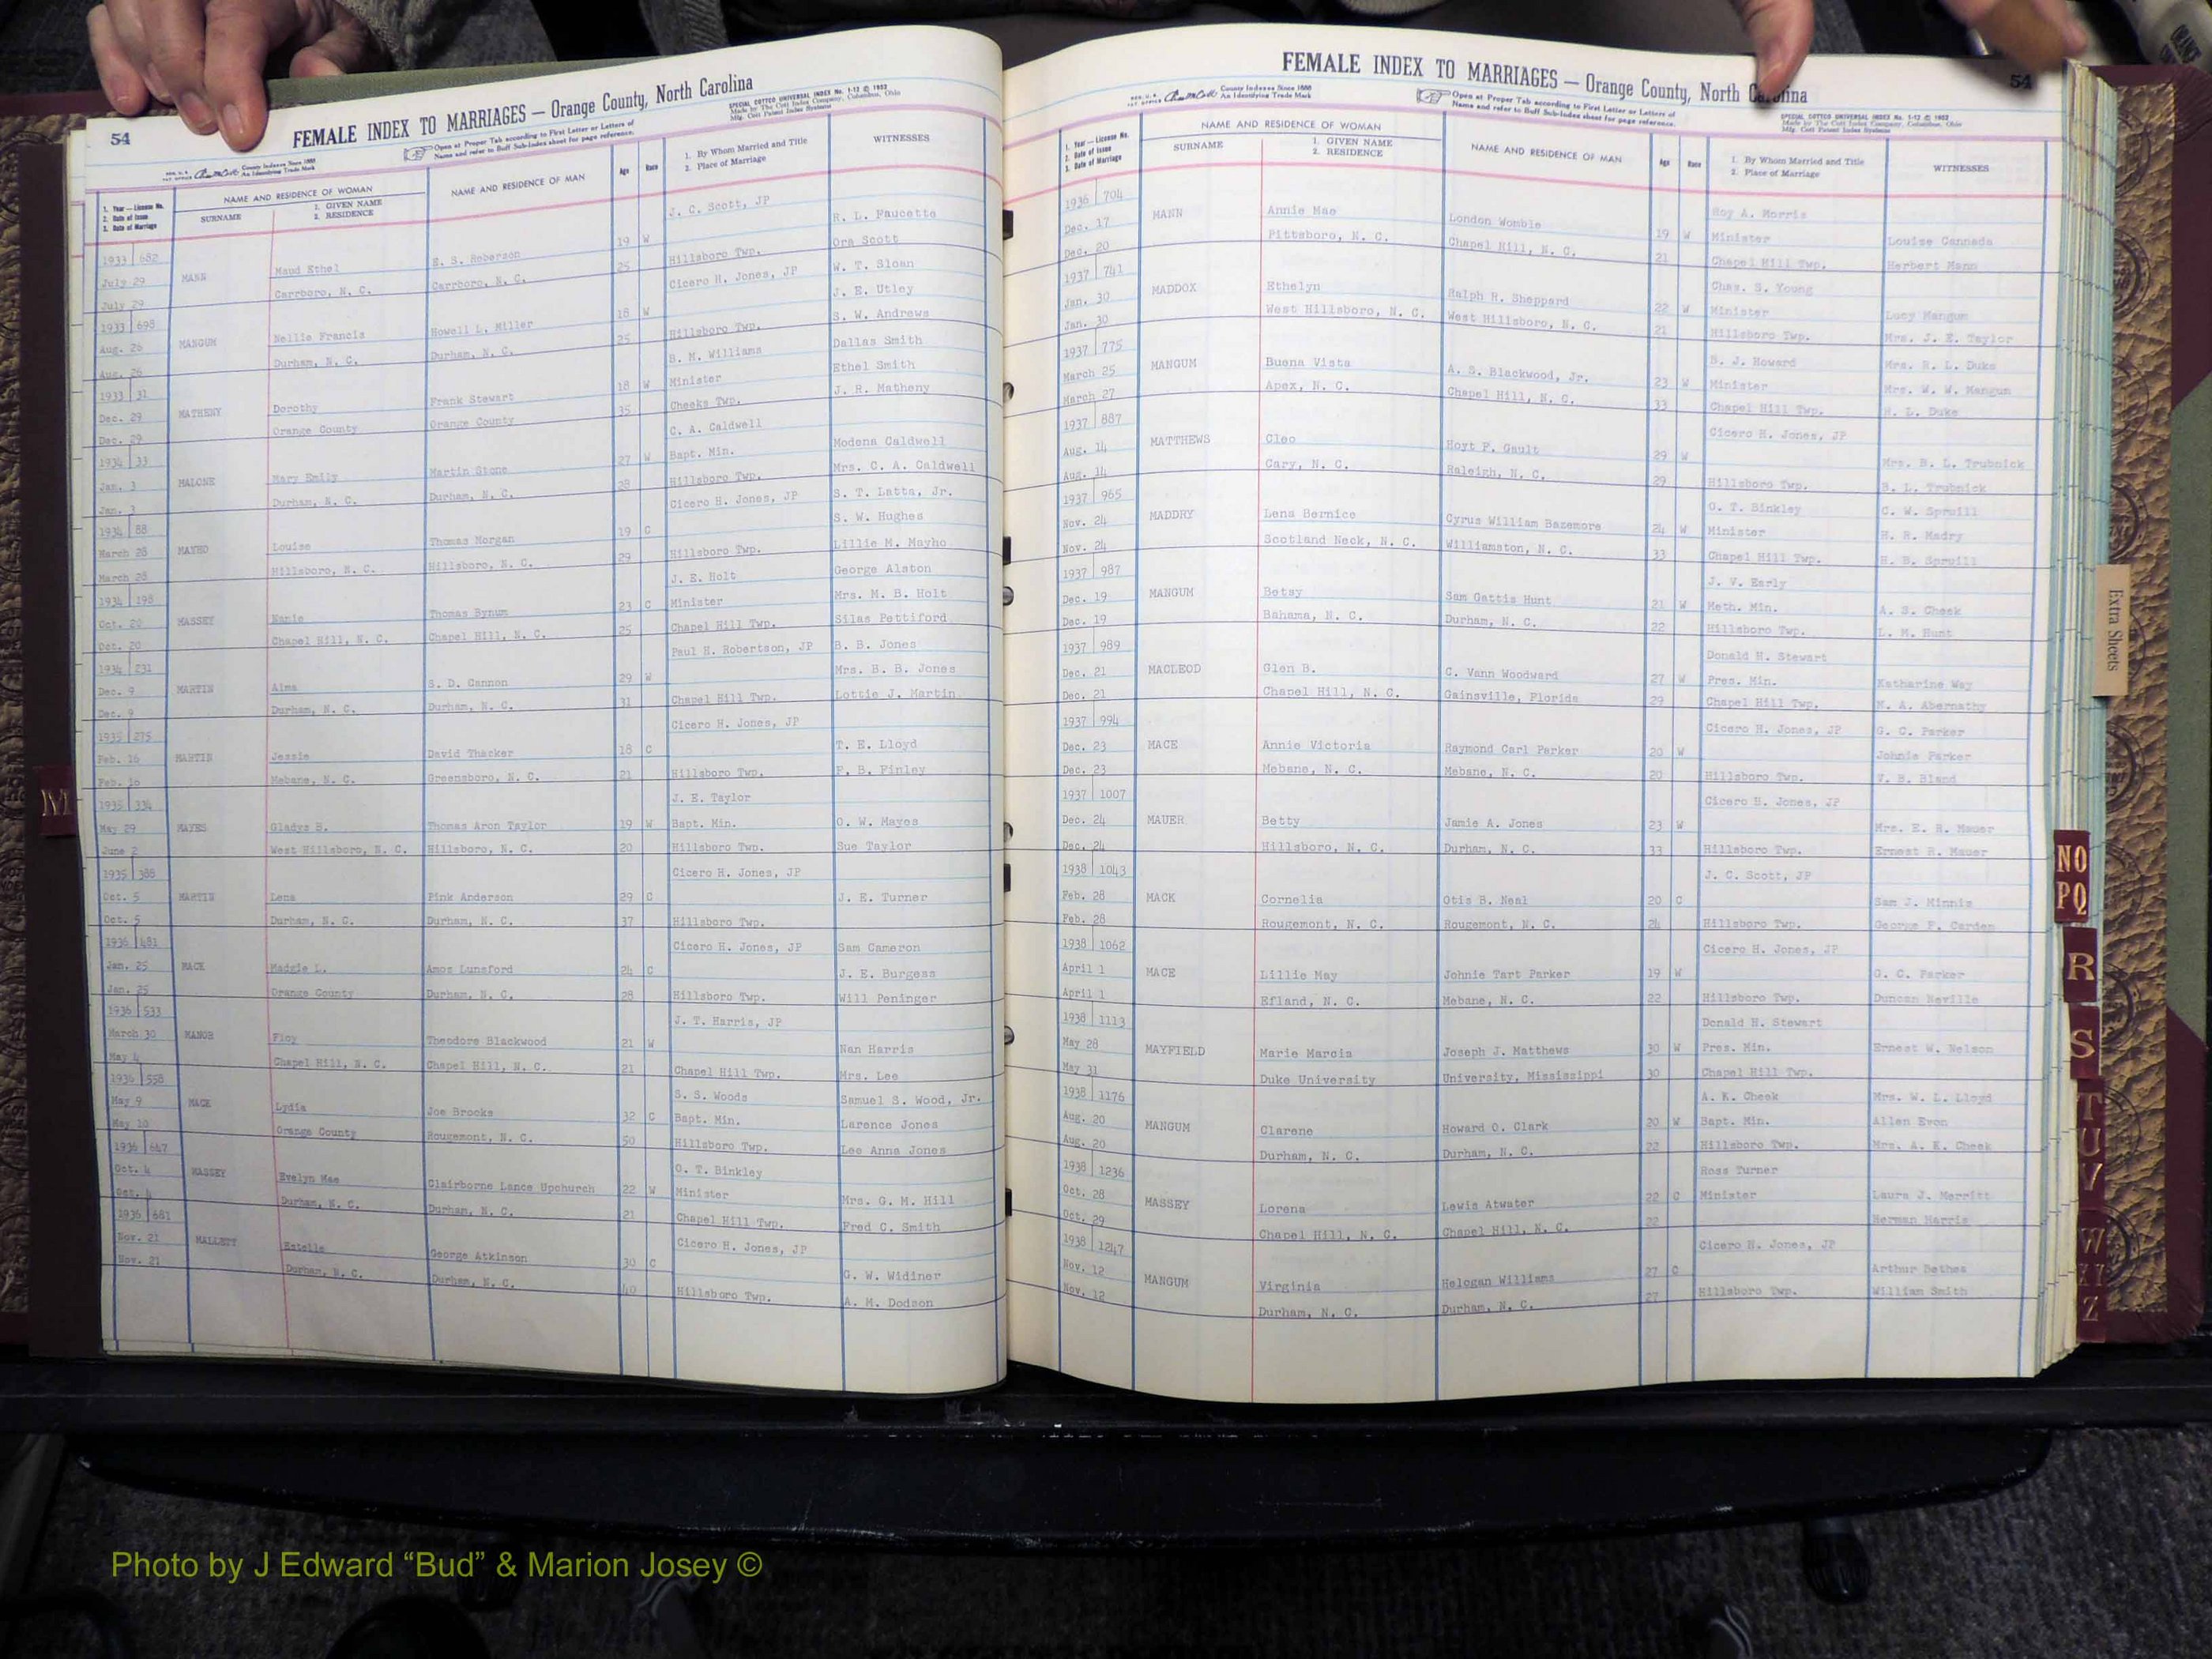 54
FEMALE INDEX TO MARRIAGES — Orange County, North Carolina
County Indexes Since 1888
An Identifying Trade Mark
Open at Proper Tab according to First Letter or Letters of
Name and refer to Buff Sub-Index sheet for page reference.
SPECIAL COTTCO UNIVERSAL INDEX No. 1-12 © 1952
Made by The Cott Index Company, Columbus, Ohio
Mfg. Cott Patent Index Systems
1. Year — License No.
2. Date of Issue
3. Date of Marriage
NAME AND RESIDENCE OF WOMAN
SURNAME
1. GIVEN NAME
2. RESIDENCE
NAME AND RESIDENCE OF MAN
Age
Race
1. By Whom Married and Title
2. Place of Marriage
WITNESSES
J. C. Scott, JP
1933 682 19 W R. L. Faucette
July 29 MANN Maud Ethel E. S. Roberson 25 Hillsboro Twp. Ora Scott
July 29 Carrboro, N. C. Carrboro, N. C.
Cicero H. Jones, JP W. T. Sloan
1933 698 18 W J. E. Utley
Aug. 26 MANGUM Nellie Francis Howell L. Miller 25 Hillsboro Twp. S. W. Andrews
Aug. 26 Durham, N. C. Durham, N. C.
S. M. Williams Dallas Smith
1933 31 18 W Minister Ethel Smith
Dec. 29 MATHENY Dorothy Frank Stewart 35 Cheeks Twp. J. R. Matheny
Dec. 29 Orange County Orange County
C. A. Caldwell
1934 33 27 W Bapt. Min. Modena Caldwell
Jan. 3 MALONE Mary Emily Martin Stone 28 Hillsboro Twp. Mrs. C. A. Caldwell
Jan. 3 Durham, N. C. Durham, N. C.
Cicero H. Jones, JP S. T. Latta, Jr.
1934 88 19 C S. W. Hughes
March 28 MAYHO Louise Thomas Morgan 29 Hillsboro Twp. Lillie M. Mayho
March 28 Hillsboro, N. C. Hillsboro, N. C.
J. E. Holt George Alston
1934 198 23 C Minister Mrs. M. B. Holt
Oct. 20 MASSEY Thomas Bynum 25 Chapel Hill Twp. Silas Pettiford
Oct. 20 Chapel Hill, N. C. Chapel Hill, N. C.
Paul H. Robertson, JP B. B. Jones
1934 231 29 W Mrs. B. B. Jones
Dec. 9 MARTIN Alma S. D. Cannon 31 Chapel Hill Twp. Lottie J. Martin
Dec. 9 Durham, N. C. Durham, N. C.
Cicero H. Jones, JP
1935 275 18 C T. E. Lloyd
Feb. 16 MARTIN Jessie David Thacker 21 Hillsboro Twp. F. B. Finley
Feb. 16 Mebane, N. C. Greensboro, N. C.
1935 334 J. E. Taylor
May 29 MAYES Gladys B. Thomas Aron Taylor 19 W Bapt. Min. O. W. Mayes
June 2 West Hillsboro, N. C. Hillsboro, N. C. 20 Hillsboro Twp. Sue Taylor
1935 386 Cicero H. Jones, JP
Oct. 5 MARTIN Lena Pink Anderson 29 C J. E. Turner
Oct. 5 Durham, N. C. Durham, N. C. 37 Hillsboro Twp.
1936 481 Cicero H. Jones, JP Sam Cameron
Jan. 25 MACK Madgie L. Amos Lunsford 24 C J. E. Burgess
Jan. 25 Orange County Durham, N. C. 28 Hillsboro Twp. Will Peninger
1936 533 J. T. Harris, JP
March 30 Floy Theodore Blackwood 21 W Nan Harris
May 4 Chapel Hill, N. C. Chapel Hill, N. C. 21 Chapel Hill Twp. Mrs. Lee
1936 558 S. S. Woods Samuel S. Wood, Jr.
May 9 MACK Lydia Joe Brooks 32 C Bapt. Min. Larence Jones
May 10 Orange County Rougemont, N. C. 50 Hillsboro Twp. Lee Anna Jones
1936 647 O. T. Binkley
Oct. 4 MASSEY Evelyn Mae Clairborne Lance Upchurch 22 W Minister Mrs. G. M. Hill
Oct. 4 Durham, N. C. Durham, N. C. 21 Chapel Hill Twp. Fred C. Smith
1936 681 Cicero H. Jones, JP
Nov. 21 MALLETT Estelle George Atkinson 30 C G. W. Widiner
Nov. 21 Durham, N. C. Durham, N. C. 40 Hillsboro Twp. A. M. Dodson
54
FEMALE INDEX TO MARRIAGES — Orange County, North Carolina
County Indexes Since 1888
An Identifying Trade Mark
Open at Proper Tab according to First Letter or Letters of
Name and refer to Buff Sub-Index sheet for page reference.
SPECIAL COTTCO UNIVERSAL INDEX No. 1-12 © 1952
Made by The Cott Index Company, Columbus, Ohio
Mfg. Cott Patent Index Systems
1. Year — License No.
2. Date of Issue
3. Date of Marriage
NAME AND RESIDENCE OF WOMAN
SURNAME
1. GIVEN NAME
2. RESIDENCE
NAME AND RESIDENCE OF MAN
Age
Race
1. By Whom Married and Title
2. Place of Marriage
WITNESSES
1936 704 Roy A. Morris
Dec. 17 MANN Annie Mae London Womble 19 W Minister Louise Cannada
Dec. 20 Pittsboro, N. C. Chapel Hill, N. C. 21 Chapel Hill Twp. Herbert Mann
1937 741 Chas. S. Young
Jan. 30 MADDOX Ethelyn Ralph R. Sheppard 22 W Minister Lucy Mangum
Jan. 30 West Hillsboro, N. C. West Hillsboro, N. C. 21 Hillsboro Twp. Mrs. J. E. Taylor
1937 775 S. J. Howard Mrs. R. L. Duke
March 25 MANGUM Buena Vista A. S. Blackwood, Jr. 23 W Minister Mrs. W. W. Mangum
March 27 Apex, N. C. Chapel Hill, N. C. 33 Chapel Hill Twp. R. L. Duke
1937 887 Cicero H. Jones, JP
Aug. 14 MATTHEWS Cleo Hoyt P. Gault 29 W Mrs. B. L. Trubnick
Aug. 14 Cary, N. C. Raleigh, N. C. 29 Hillsboro Twp. B. L. Trubnick
1937 965 O. T. Binkley C. W. Spruill
Nov. 24 MADDRY Lena Bernice Cyrus William Bazemore 24 W Minister H. R. Madry
Nov. 24 Scotland Neck, N. C. Williamston, N. C. 33 Chapel Hill Twp. H. B. Spruill
1937 987 J. V. Early
Dec. 19 MANGUM Betsy Sam Gattis Hunt 21 W Meth. Min. A. S. Cheek
Dec. 19 Bahama, N. C. Durham, N. C. 22 Hillsboro Twp. L. M. Hunt
1937 989 Donald H. Stewart
Dec. 21 MACLEOD Glen B. C. Vann Woodward 27 W Pres. Min. Katharine Way
Dec. 21 Chapel Hill, N. C. Gainsville, Florida 29 Chapel Hill Twp. M. A. Abernathy
1937 994 Cicero H. Jones, JP G. C. Parker
Dec. 23 MACE Annie Victoria Raymond Carl Parker 20 W Johnie Parker
Dec. 23 Mebane, N. C. Mebane, N. C. 20 Hillsboro Twp. W. B. Bland
1937 1007 Cicero H. Jones, JP
Dec. 24 MAUER Betty Jamie A. Jones 23 W Mrs. E. R. Mauer
Dec. 24 Hillsboro, N. C. Durham, N. C. 33 Hillsboro Twp. Ernest R. Mauer
1938 1043 J. C. Scott, JP
Feb. 28 MACK Cornelia Otis B. Neal 20 C Sam J. Minnis
Feb. 28 Rougemont, N. C. Rougemont, N. C. 24 Hillsboro Twp. George F. Carden
1938 1062 Cicero H. Jones, JP
April 1 MACE Lillie May Johnie Tart Parker 19 W G. C. Parker
April 1 Efland, N. C. Mebane, N. C. 22 Hillsboro Twp. Duncan Neville
1938 1113 Donald H. Stewart
May 28 MAYFIELD Marie Marcia Joseph J. Matthews 30 W Pres. Min. Ernest W. Nelson
May 31 Duke University University, Mississippi 30 Chapel Hill Twp.
1938 1176 A. K. Cheek Mrs. W. L. Lloyd
Aug. 20 MANGUM Clarene Howard O. Clark 20 W Bapt. Min. Allen Evon
Aug. 20 Durham, N. C. Durham, N. C. 22 Hillsboro Twp. Mrs. A. K. Cheek
1938 1236 Ross Turner
Oct. 28 MASSEY Lorena Lewis Atwater 22 C Minister Laura J. Merritt
Oct. 29 Chapel Hill, N. C. Chapel Hill, N. C. 22 Herman Harris
1938 1247 Cicero H. Jones, JP
Nov. 12 MANGUM Virginia Helogan Williams 27 C Arthur Bethea
Nov. 12 Durham, N. C. Durham, N. C. 27 Hillsboro Twp. William Smith
M
Extra Sheets
NO
PQ
R
S
T
U
V
W
XY
Z
Photo by J Edward “Bud” & Marion Josey ©